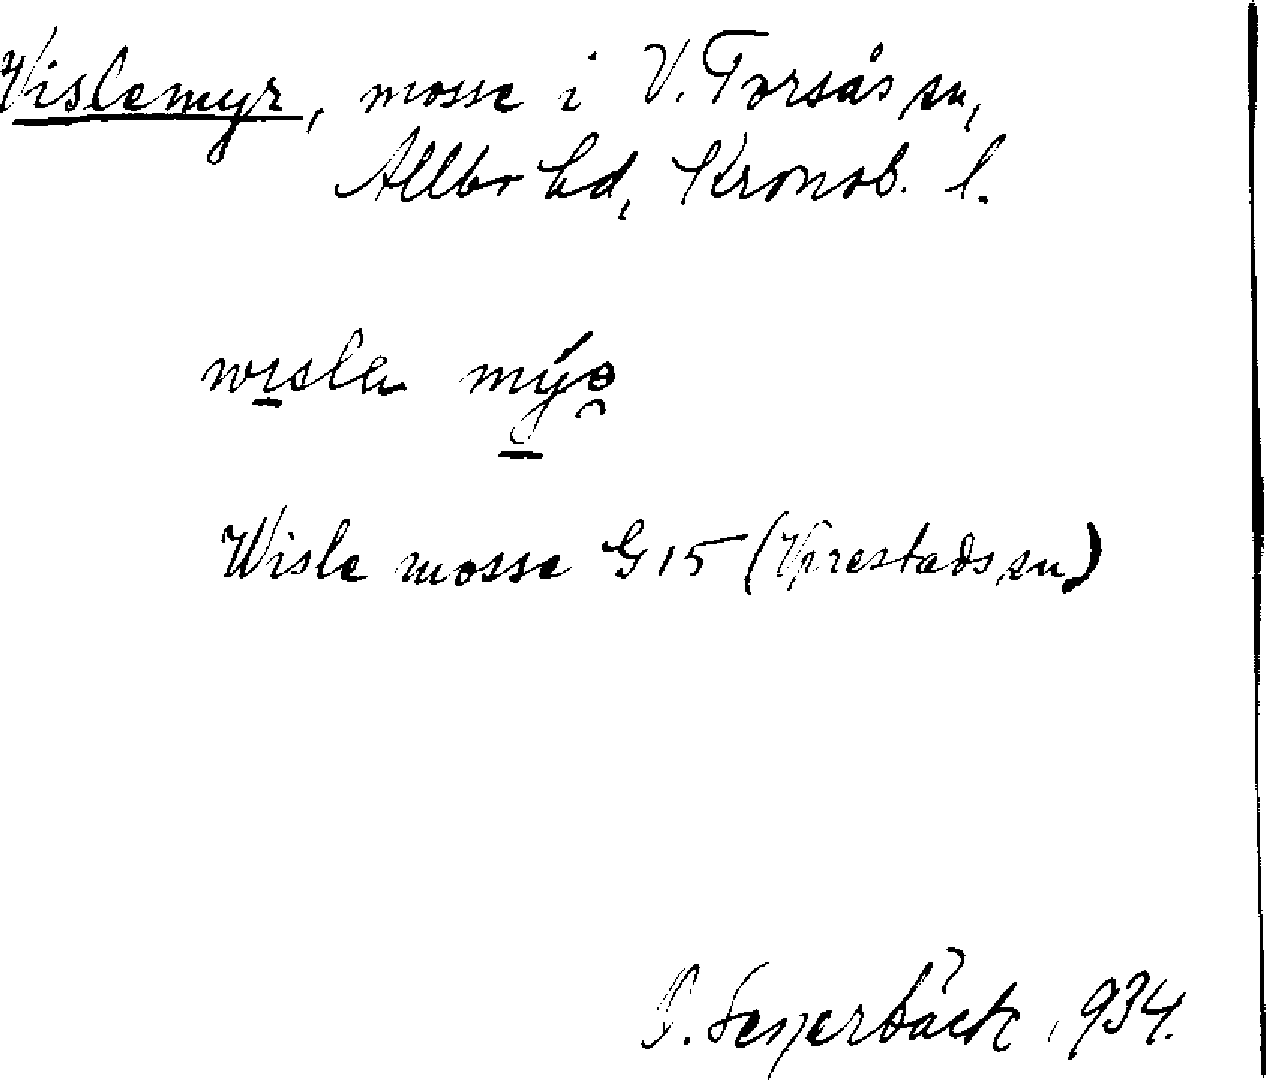 Vislemyr, mosse i V. Torsås sn,
Allbo hd, Kronob. l.
wɪsla mýɵ̯
Wisle mosse G 15 (Virestads sn)
P. Segerbäck, 934.